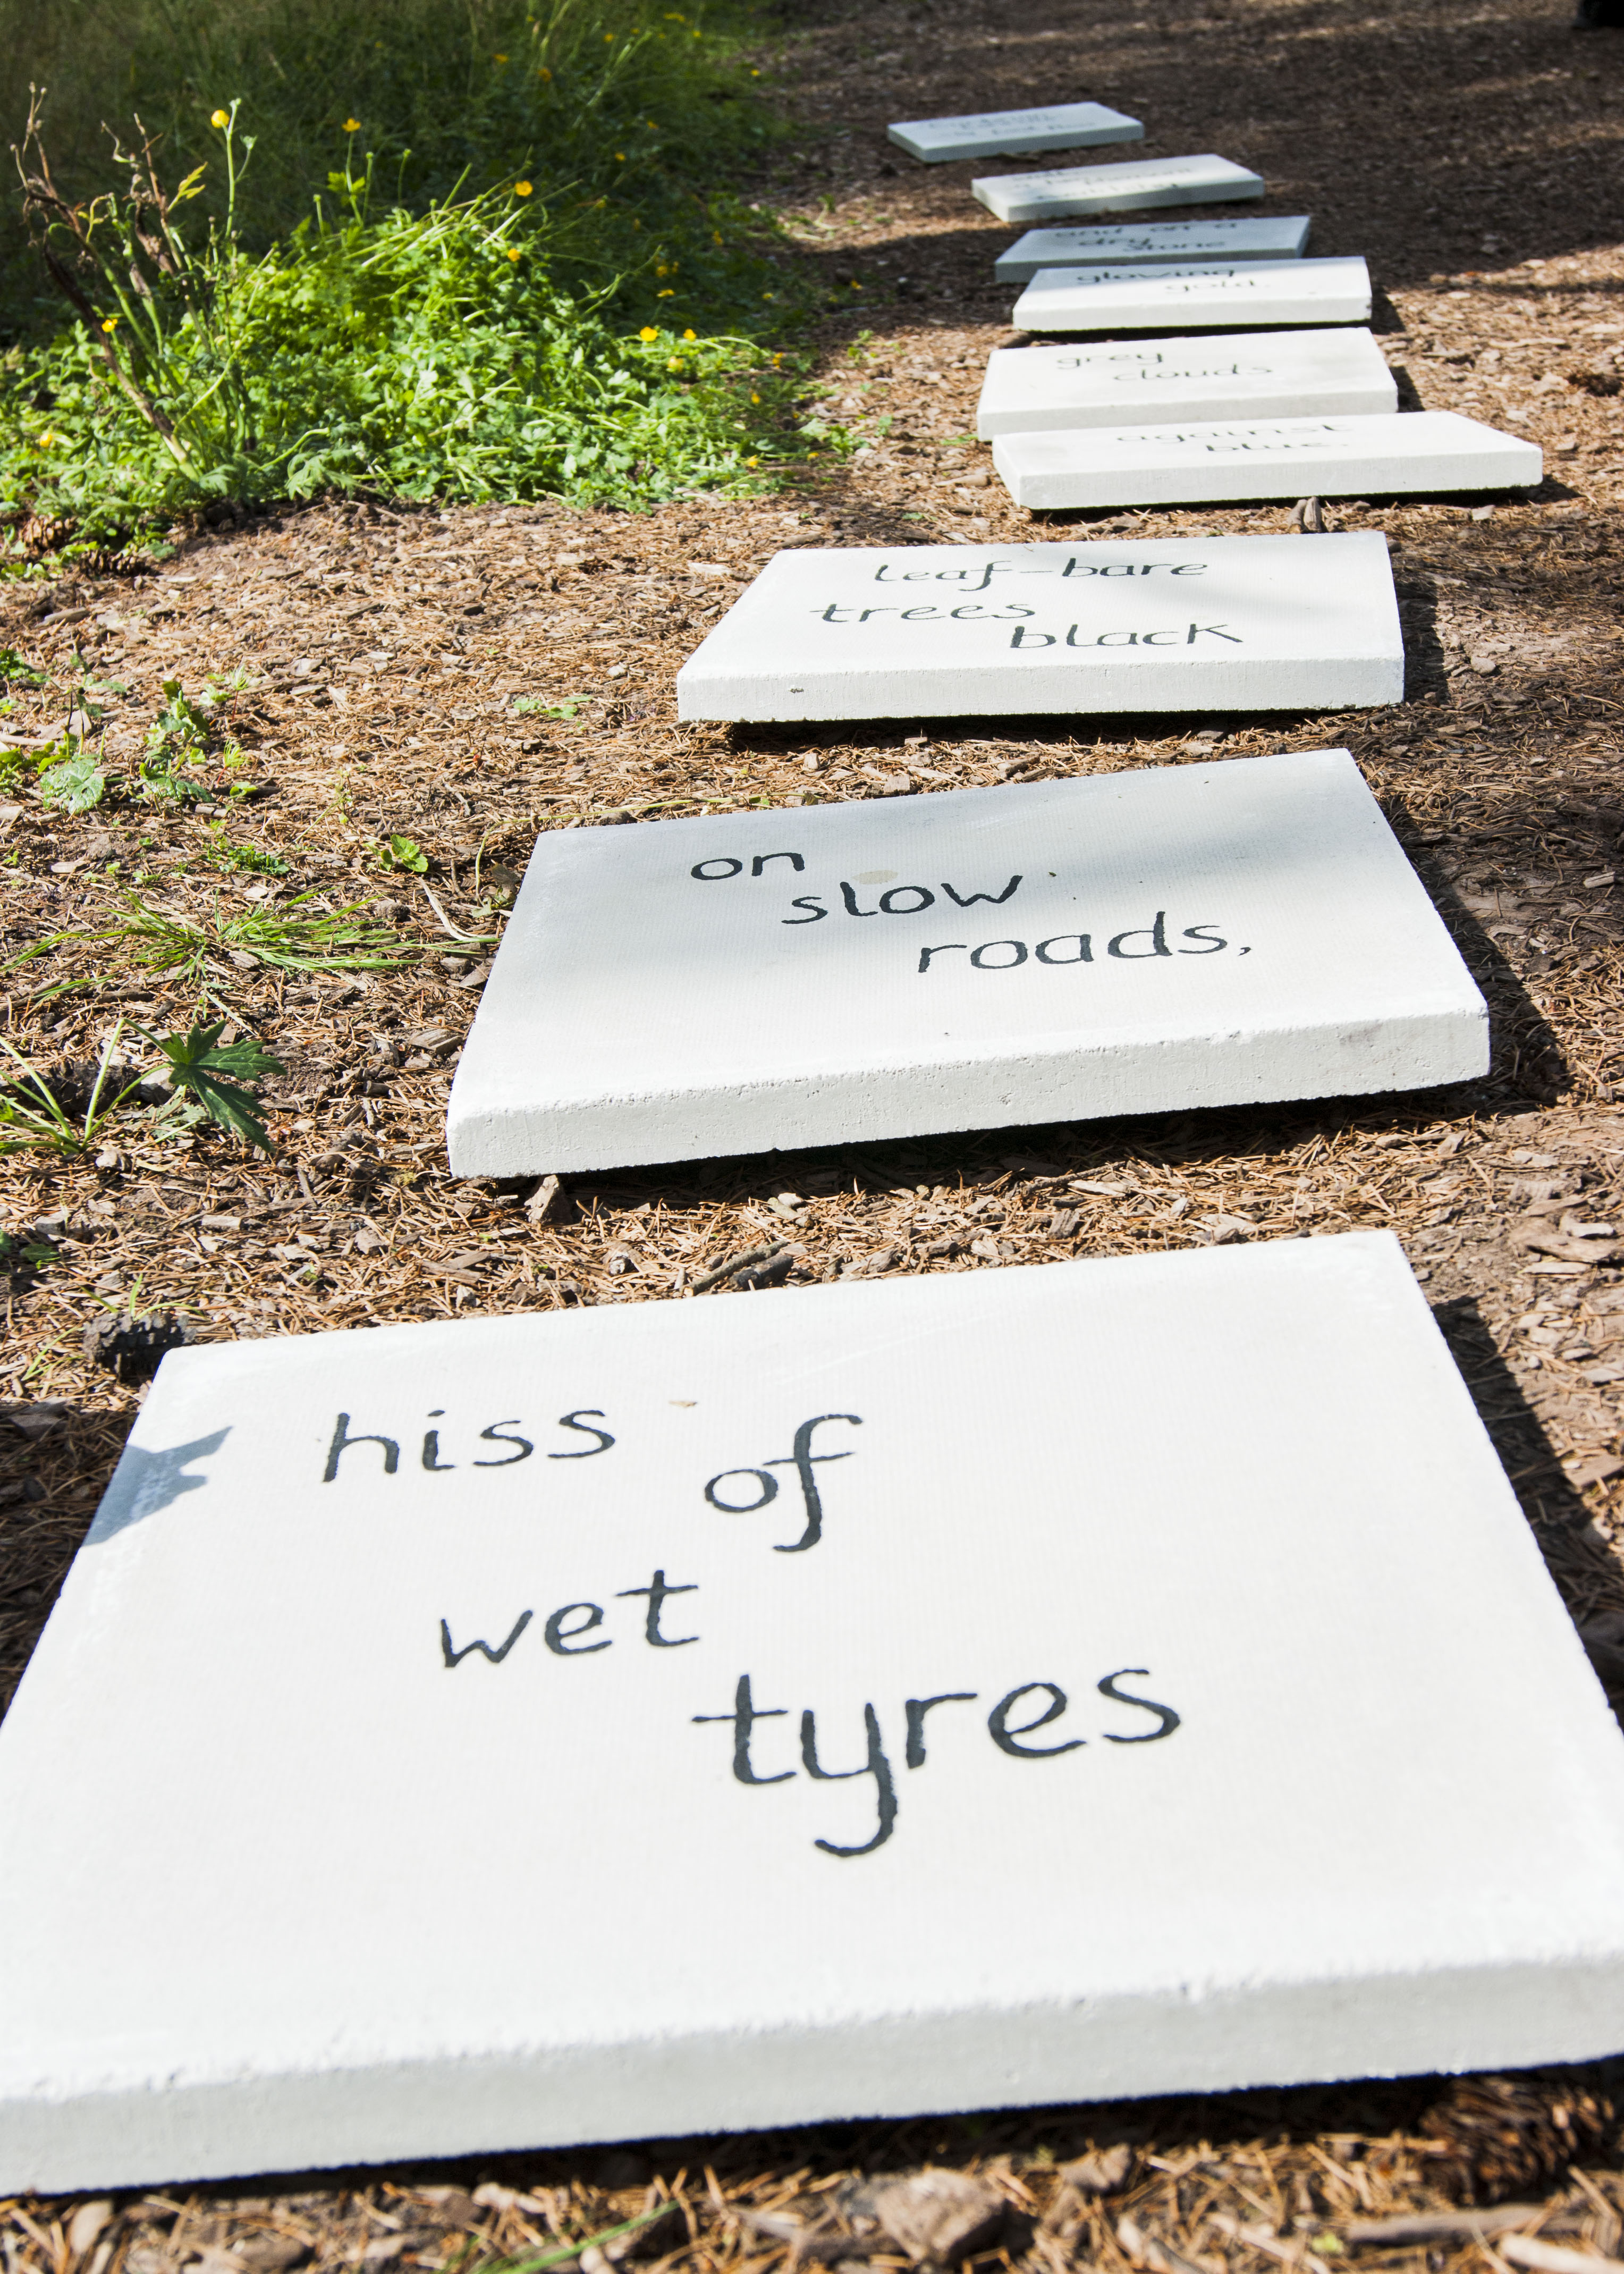 hiss
of
wet
tyres
on
slow
roads,
leaf-bare
trees
black
against
blue.
grey
clouds
glowing
gold.
and on a
dry stone